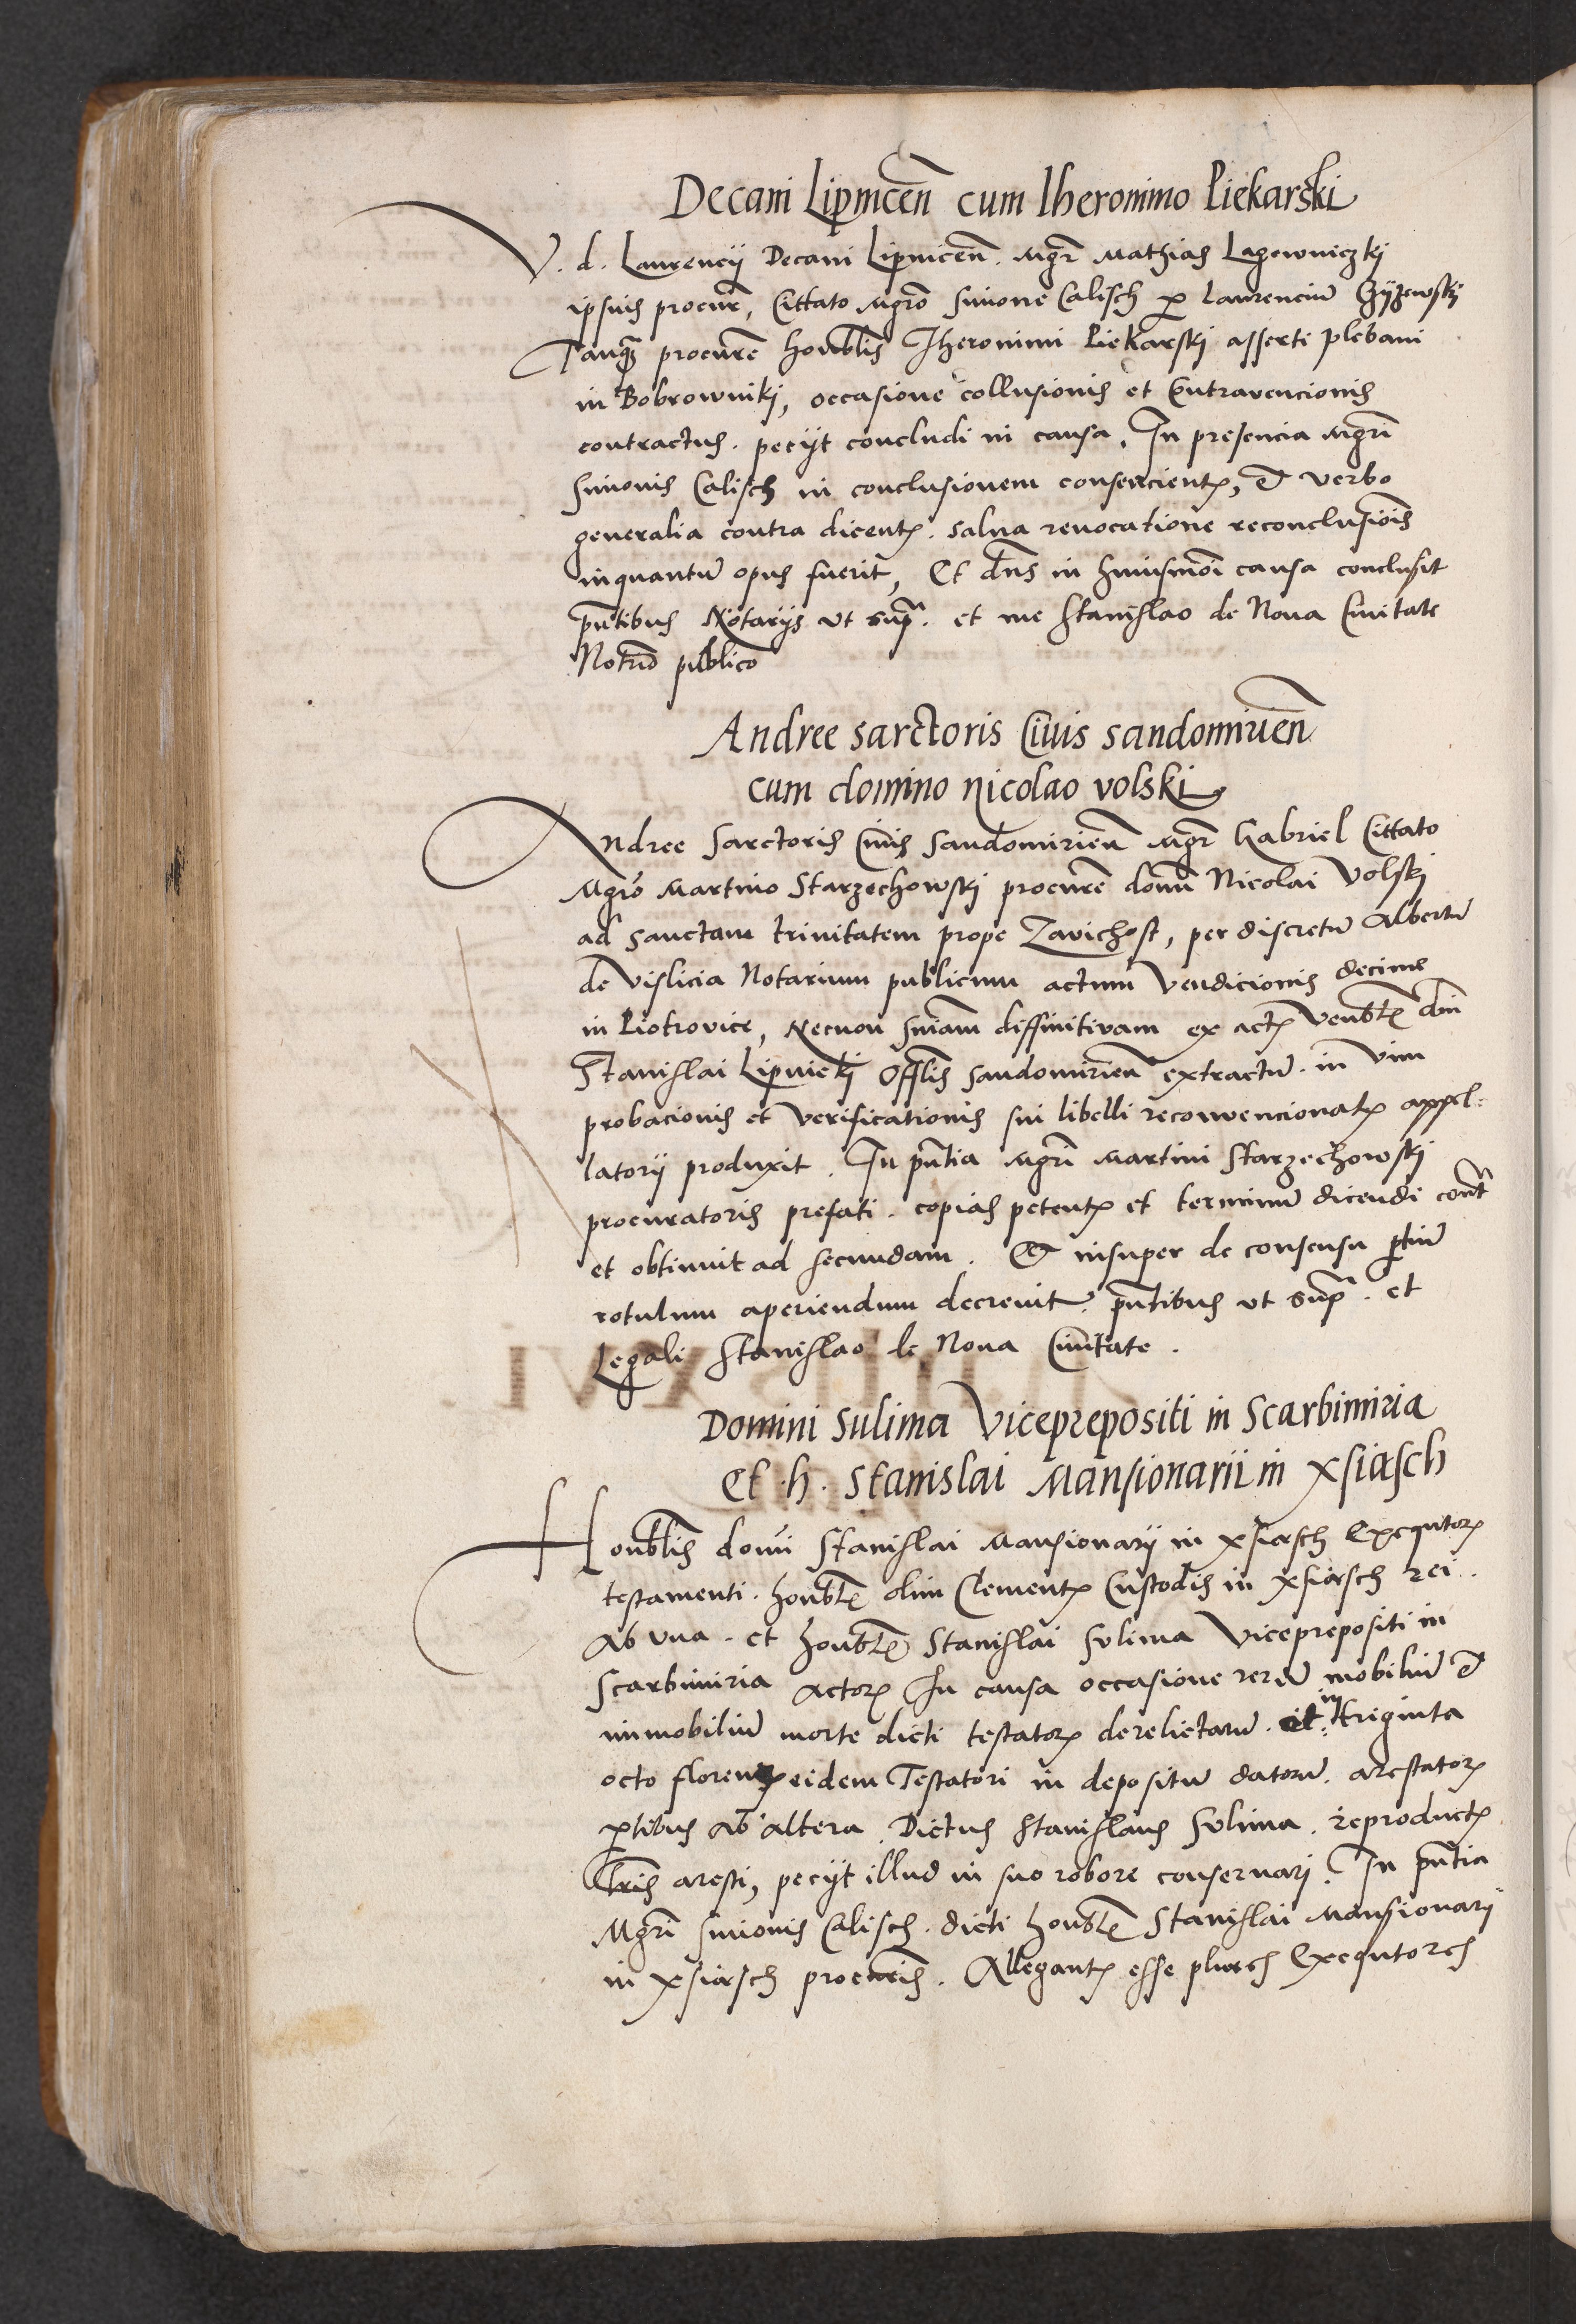 Decani Lipnicen̄ cum Iheronimo Piekarski
V. d. Laurencij Decani Lipnicen̄. Mgr̄ Mathias Lagowniczki
ipsius procur̄, Cittato mgr̄o Simone Calisch p Laurenciū Czyżewskj
Tanqᷓ procur̄e honbl̄is Iheronimi Piekarskj asserti plebani
in Bobrownikj, occasione collusionis et Contravencionis
contractus. pecijt concludi in causa, In presencia mgr̄i
Simonis Calisch in conclusionem consencientꝭ, & verbo
generalia contra dicentꝭ. salua reuocatione reconclusiōis
inquantū opus fuerit, Et dn̄s in huiusmōi causa conclusit
pn̄tibus Notarijs vt supᷓ. et me Stanislao de Noua Ciuitate
Notr̄io publico
Andree sarctoris Ciuis sandomirien̄
cum domino nicolao volski
Andree Sarctoris Ciuis Sandomirien̄ Mgr̄ Gabriel Cittato
Mgr̄o Martino Starzechowskj procur̄e domī Nicolai Volskj
ad sanctam trinitatem prope Zavichost, per discretū Albertū
de Vislicia Notarium publicum actum Vendicionis decime
in Piotrovice, Necnon sn̄iam diffinitivam ex actꝭ venbl̄ꝭ dn̄i
Stanislai Lipnickj Offl̄is Sandomirien̄ extractū. in vim
probacionis et verificationis sui libelli reconvencionalꝭ appel:
latorij produxit. In pn̄tia mgr̄i Martini Starzechowskj
procuratoris prefati. copias petentꝭ et terminū dicendi contᷓ
et obtinuit ad secundam. Et insuper de consensu ptiū
rotulum aperiendum decreuit. pn̄tibus vt supᷓ. et
Legali Stanislao de Noua Ciuitate.
Domini Sulima Viceprepositi in Scarbimiria
Et h. Stanislai Mansionarii in Xsiasch
Honbl̄is domī Stanislai Mansionarij in Xsiasch Exequtorꝭ
testamenti. honbl̄ꝭ olim Clementꝭ Custodis in Xsiasch rei.
Ab vna. et honbl̄ꝭ Stanislai Solima Viceprepositi in
Scarbimiria Actorꝭ In causa occasione rerū mobiliū &
immobiliū morte dicti testatorꝭ derelictarū. triginta
octo florenꝭ eidem Testatori in depositū datorū. arestatorꝭ
ptibus Ab altera. Dictus Stanislaus Solima. reproductꝭ
Lr̄is aresti, pecijt illud in suo robore conseruari. In pn̄tia
Mgr̄i Simonis Calisch. dicti honbl̄ꝭ Stanislai Mansionarij
in Xsiasch procur̄is. Allegantꝭ esse plures Exequtores